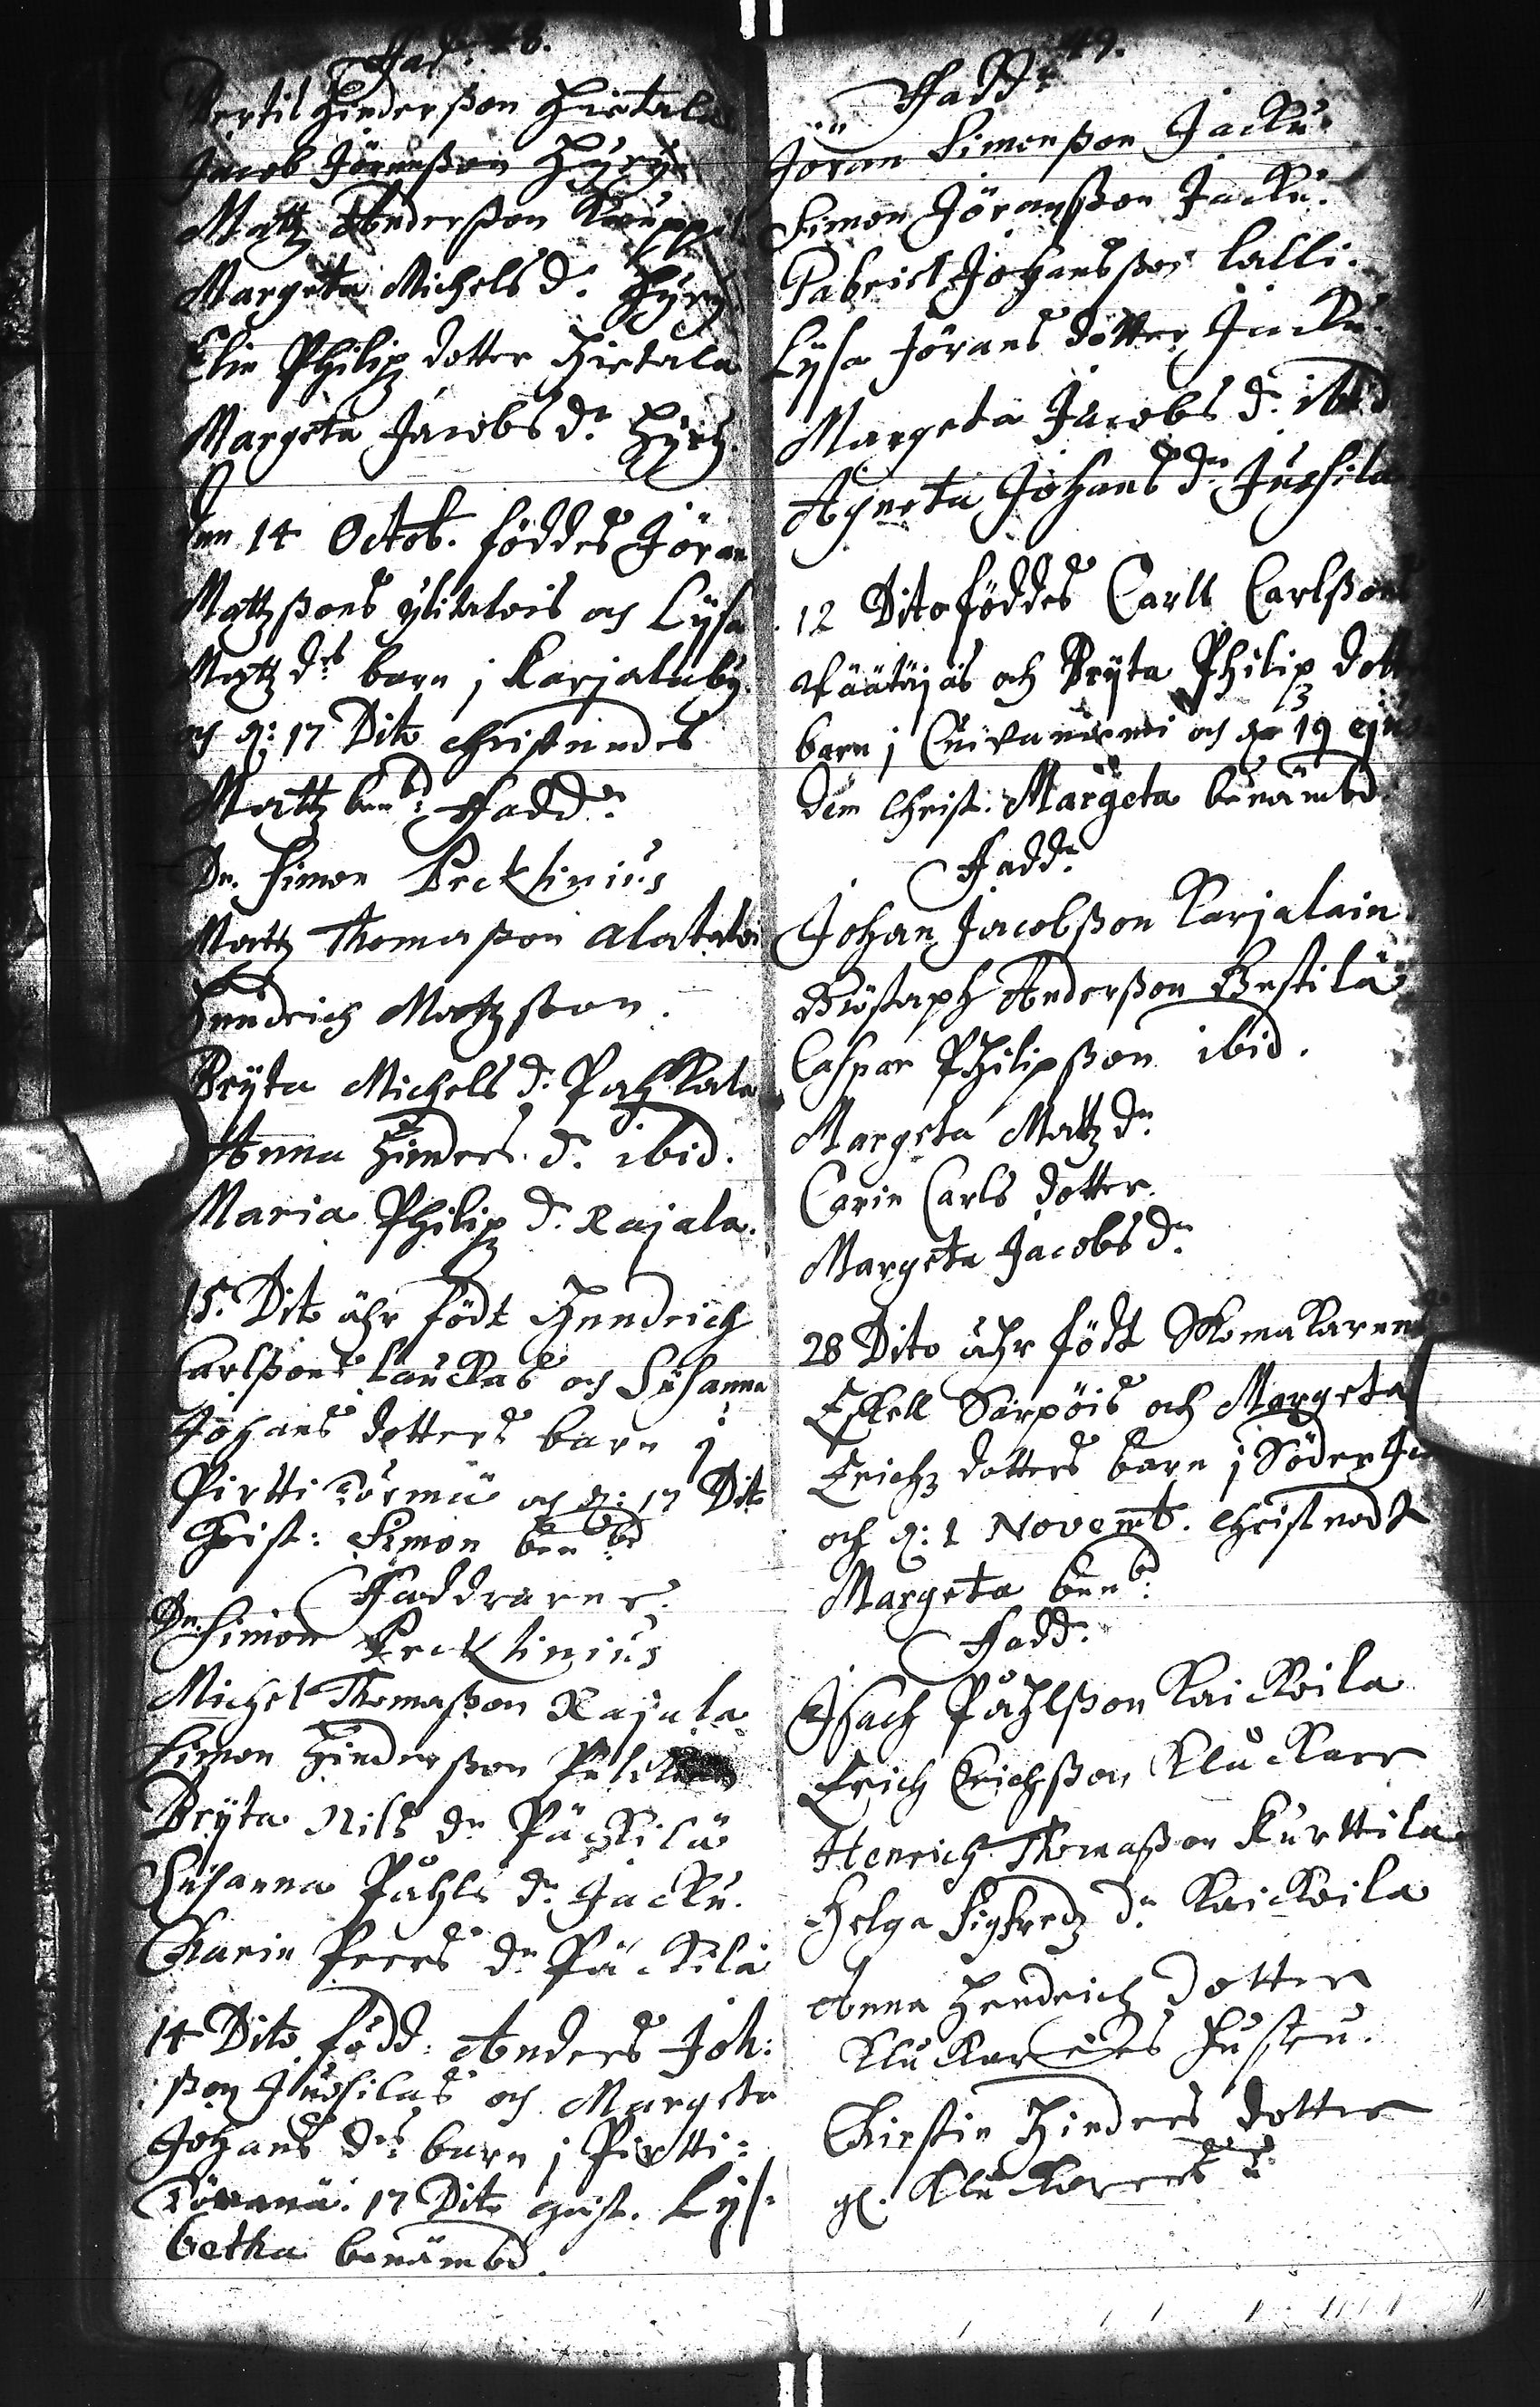 48.
Fad:
Bertil Hindersson Hietala
Jacob Jöransson Hyry
Mattz Andersson Kauppi
Margeta Michels dr. Hyry
Elin Philipz dotter Hietala
Margeta Jacobs dr. Hyry.
Den 14 Octob. föddes Jöran
Mattzssons ylitalois och Lysa
Mattz drs barn j Karjalaby.
och d: 17 Dito christnades
Mattz benbd: Fadd:
Dn. Simon Pecklinius
Mattz Thomasson alatalo
Hendrich Matzsson.
Bryta Michels dr. Pahkala
Anna Hinders dr. ibid.
Maria Philipz dr. Rajala.
15. Dito ähr födt Hendrich
Carlssons Lauckas och Susanna
Johans dotters barn j
Pirttitörmä och d: 17 Dito
Christ: Simon benbd
Faddrarne.
Dn. Simon Pecklinius
Michel Thomasson Rajala
Simon Hindersson
Bryta Nils dr Päckilä
Susanna Påhls dr. Jacku.
Karin Peers dr Päckilä
14 Dito född: Anders Joh:
sson Jussilas och Margeta
Johans drs barn j Pirtti=
törmä. 17 Dito christ. Lys=
betha benämbd.
49.
Fadd:
Jöran Simonsson Jacku.
Simon Jöransson Jacku.
Gabriel Johansson Lalli.
Lysa Jörans dotter Jacku
Margeta Jacobs dr. ibid
Agneta Johans dr Jussila
12 Dito föddes Carll Carlssons
Väätäjäs och Bryta Philipz dott
barn j Cuivaniemi och d 19 ejus
dem Christ. Margeta benämbd.
Fadd:
Johan Jacobsson Karjalain
Gustaph Andersson Bastilä
Casper Philipsson ibid.
Margeta Matz dr
Carin Carls dotter.
Margeta Jacobs dr
28 Dito ähr födt Skomakarens
Eskell Särpöis och Margeta
Erichz dotters barn j Söder
och d: 1 Novemb. Christnadt
Margeta benbd:
Fadd:
Isach Påhlsson Kaickoila
Erich Erichsson Kluckare
Henrich Thomasson Kurttila
Helga Sigfredz dr Kaickoila
Anna Hendrich dotter
Kluckarens hustru.
Kirstin Hinders dotter
gl. Kluckarens